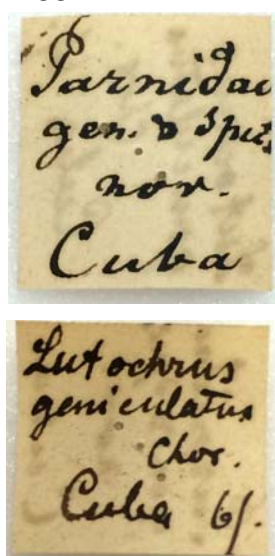 Parnidae
gen. & spec.
nov.
Cuba
Lutochrus
geniculatus
Chev.
Cuba 61.